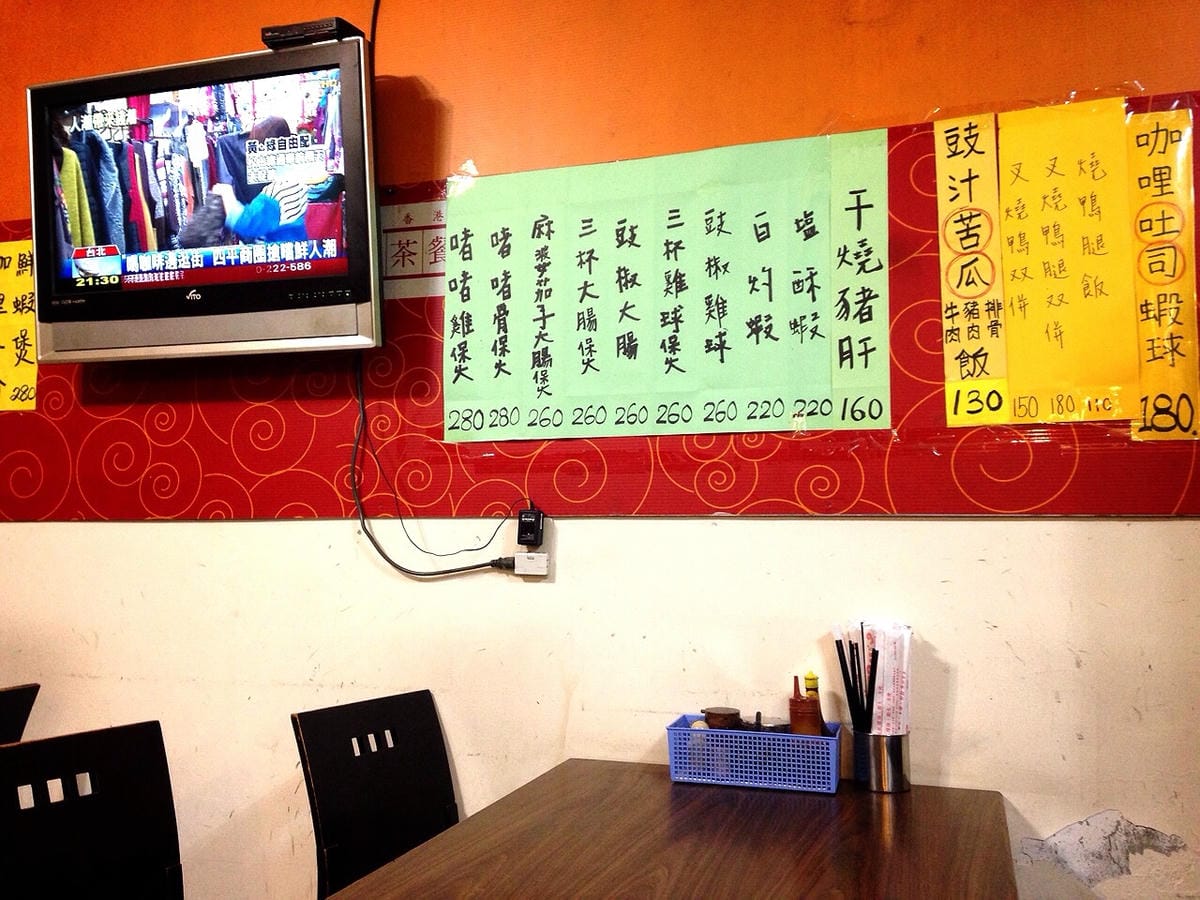 人潮帶來錢潮
黃&綠自由配
台北
21:30
喝咖啡邊逛街 四平商圈搶嚐鮮人潮
0-222-586
VITO
鮮蝦煲
280
香港
茶餐
干燒豬肝 160
塩酥蝦 220
白灼蝦 220
豉椒雞球 260
三杯雞球煲 260
豉椒大腸 260
三杯大腸煲 260
麻婆茄子大腸煲 260
啫啫骨煲 280
啫啫雞煲 280
咖哩吐司蝦球 180.
燒鴨腿飯
叉燒鴨腿双併 180
叉燒鴨双併 150
豉汁苦瓜排骨豬肉牛肉飯 130